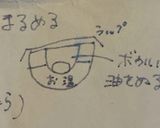 まるめる
ラップ
ボウルに
油をぬる
お湯